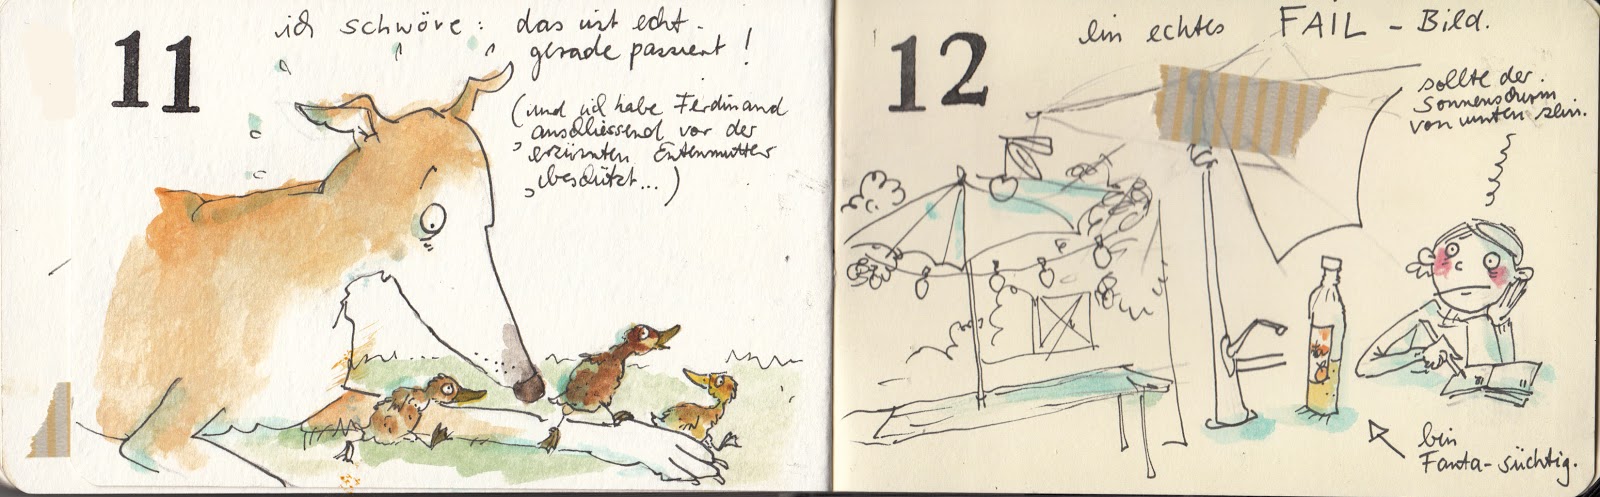 11
ich schwöre: das ist echt
gerade passiert!
(und ich habe Ferdinand
anschliessend vor der
erzürnten Entenmutter
beschützt...)
12
ein echtes FAIL - Bild.
sollte der
Sonnenschirm
von unten sein.
bin
Fanta-süchtig.